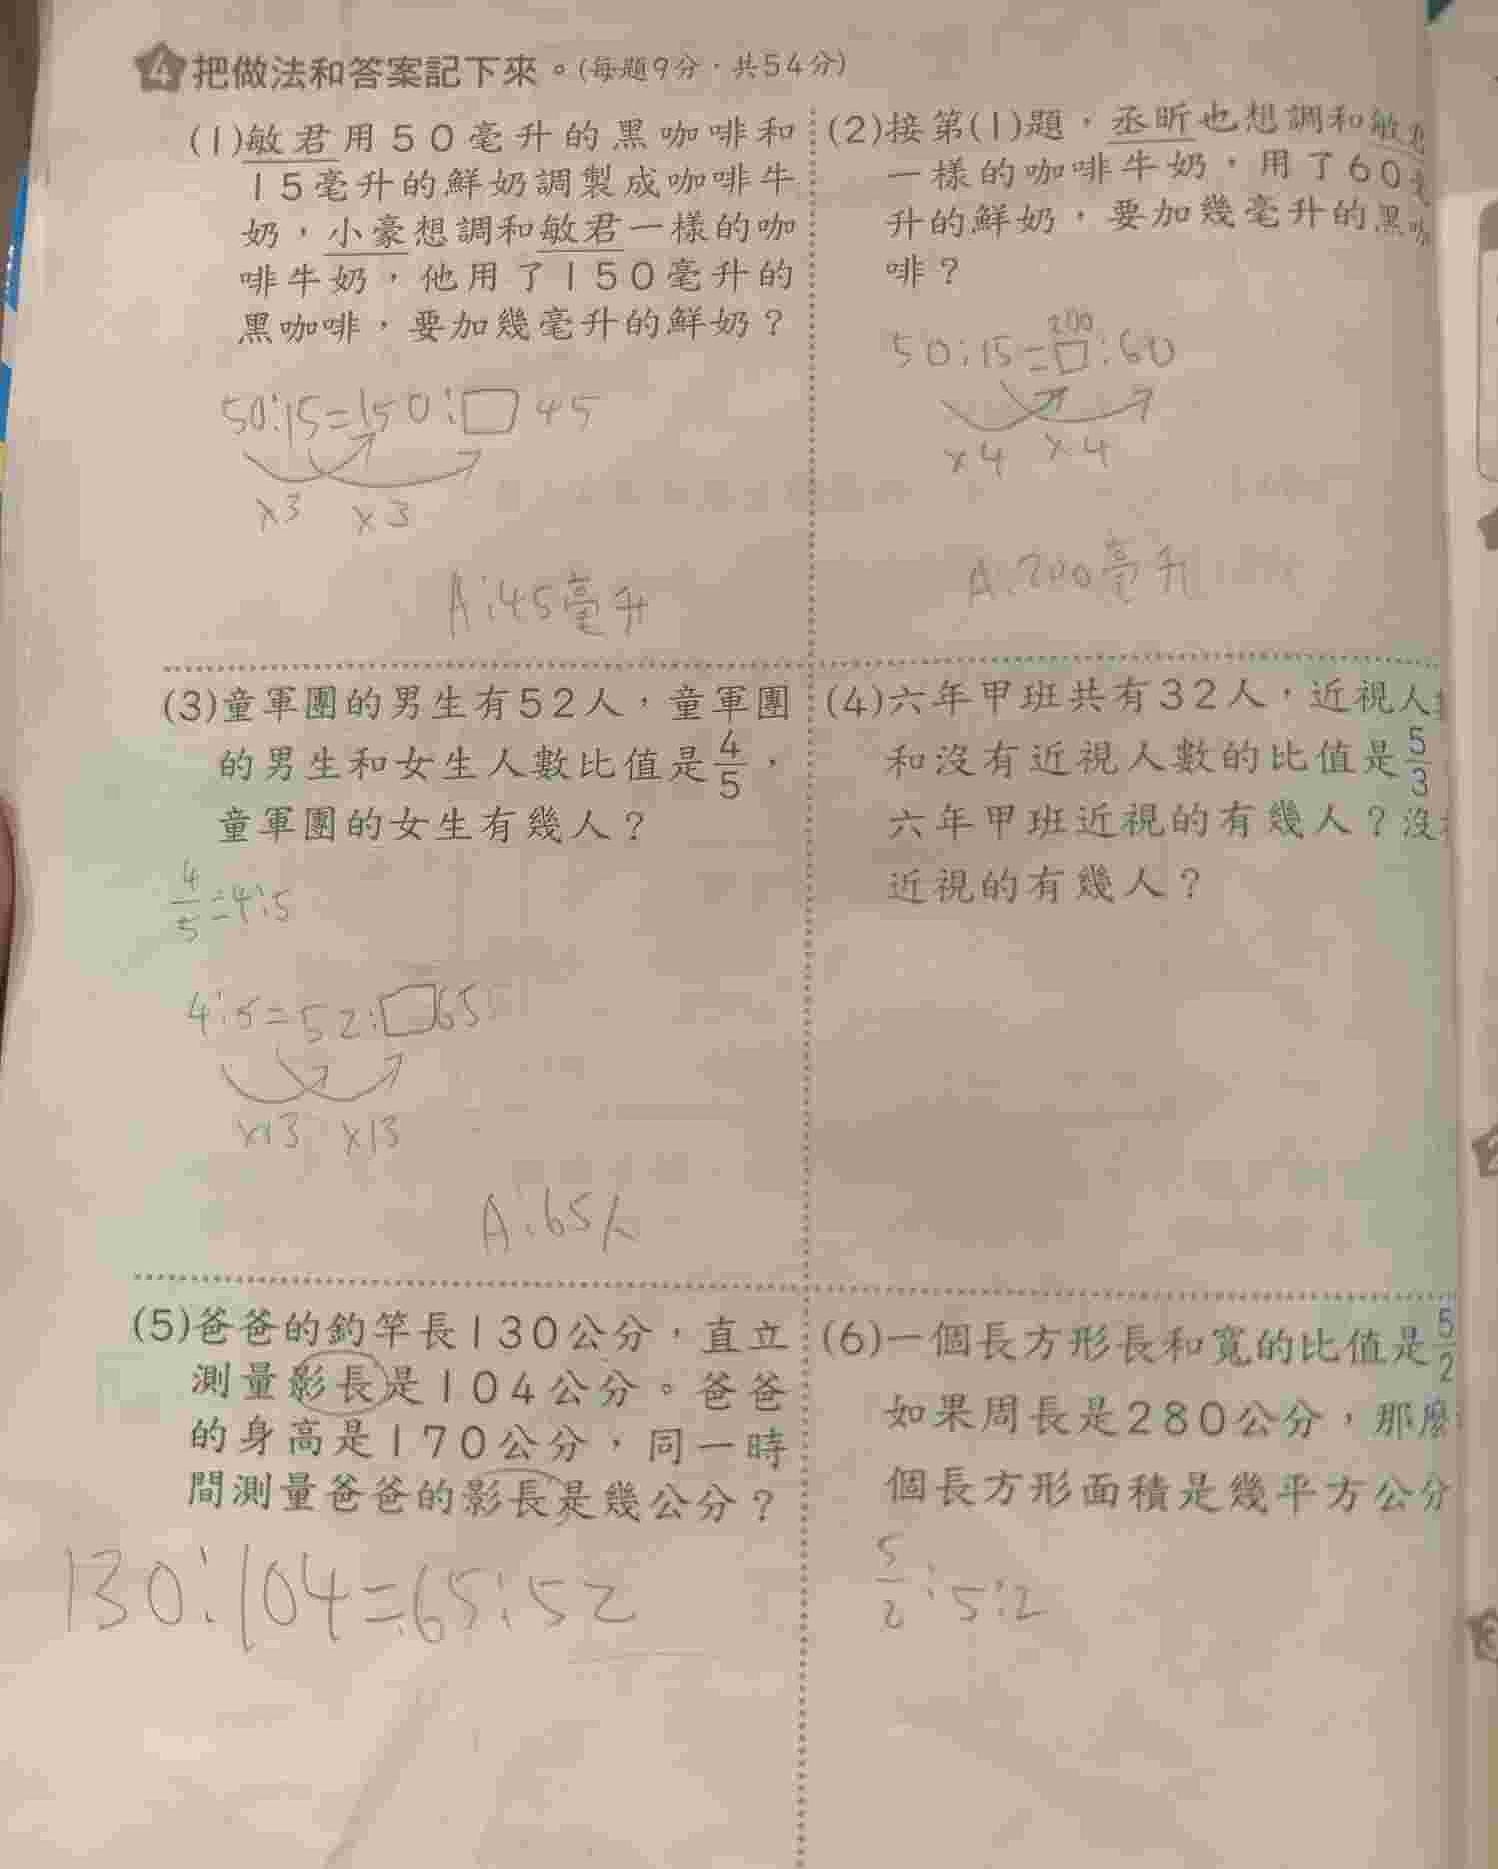 4 把做法和答案記下來。(每題9分，共54分)
(1)敏君用50毫升的黑咖啡和
15毫升的鮮奶調製成咖啡牛
奶，小豪想調和敏君一樣的咖
啡牛奶，他用了150毫升的
黑咖啡，要加幾毫升的鮮奶？
50:15=150:□ 45
×3 ×3
A:45毫升
(2)接第(1)題，丞昕也想調和敏君
一樣的咖啡牛奶，用了60毫
升的鮮奶，要加幾毫升的黑咖
啡？
200
50:15=□:60
×4 ×4
A:200毫升
(3)童軍團的男生有52人，童軍團
的男生和女生人數比值是4/5，
童軍團的女生有幾人？
4/5=4:5
4:5=52:□65
×13 ×13
A:65人
(4)六年甲班共有32人，近視人
和沒有近視人數的比值是5/3
六年甲班近視的有幾人？沒
近視的有幾人？
(5)爸爸的釣竿長130公分，直立
測量影長是104公分。爸爸
的身高是170公分，同一時
間測量爸爸的影長是幾公分？
130:104=65:52
(6)一個長方形長和寬的比值是5/2
如果周長是280公分，那麼
個長方形面積是幾平方公分
5/2:5:2